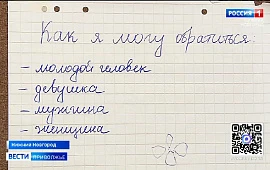 РОССИЯ 1
Как я могу обратиться:
- молодой человек
- девушка
- мужчина
- женщина
Нижний Новгород
ВЕСТИ ПРИВОЛЖЬЕ